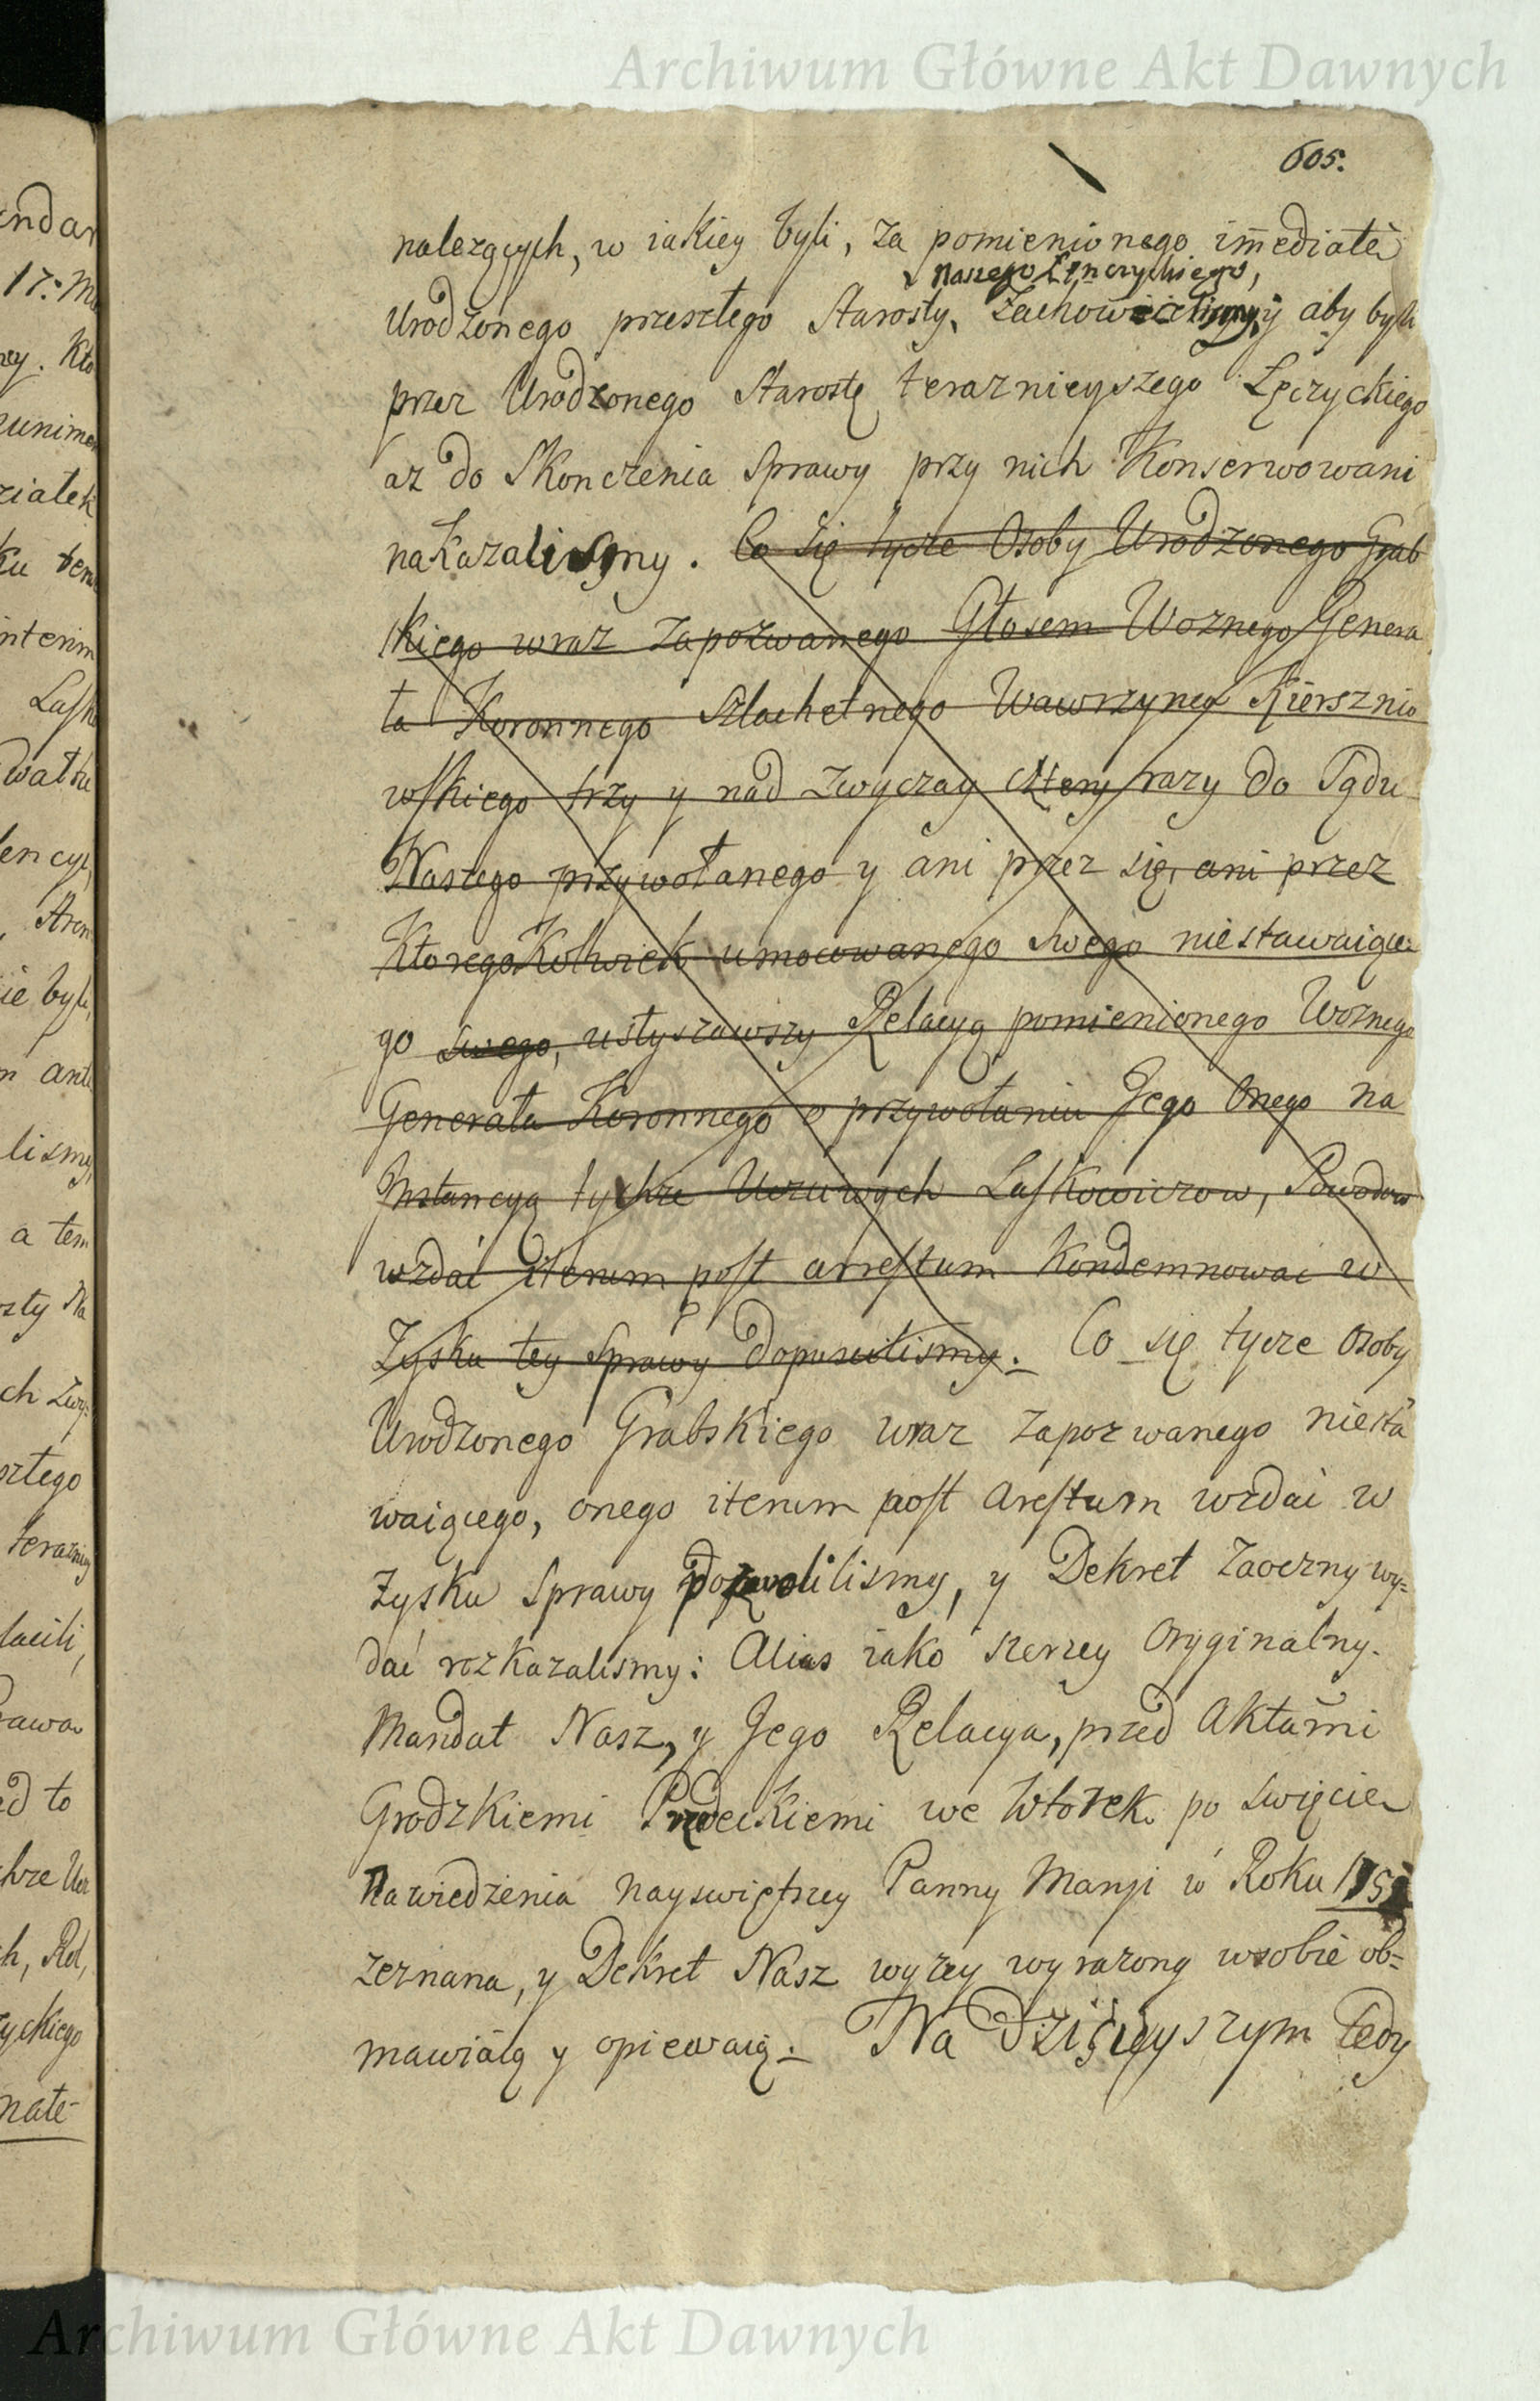 Archiwum Główne Akt Dawnych
605.
nalezących, w iakiey byli, za pomienionego im̄ediatè
naszego Łęnczyckiego,
Urodzonego przeszłego Starosty, zachowaliśmy, y aby byli
przez Urodzonego Starostę teraznieyszego Łęczyckiego
az do Skonczenia Sprawy przy nich Konserwowani
nakazalismy. Co się tycze Osoby Urodzonego Grab
skiego wraz zapozwanego Głosem Woznego Genera
ła Koronnego Szlachetnego Wawrzynca Kiersznio
wskiego trzy y nad zwyczay cztery razy do Sądu
Naszego przywołanego y ani przez się, ani przez
Ktoregokolwiek umocowanego swego niestawaiące
go swego, usłyszawszy Relacyą pomienionego Woznego
Generała Koronnego o przywołaniu Jego Onego na
Instancyą tychze Urodzonych Laskowiczow, Powodow
wzdać iterum post arrestum Kondemnować w
Zysku tey Sprawy dopuscilismy. Co się tycze Osoby
Urodzonego Grabskiego wraz zapozwanego niesta
waiącego, onego iterum post Arestum wzdać w
zysku Sprawy pozwolilismy, y Dekret zaoczny wy=
dać rozkazalismy: Alias iako szerzey Oryginalny.
Mandat Nasz, y Jego Relacya, przed Aktami
Grodzkiemi Przedeckiemi we Wtorek po swięcie
Nawiedzenia Nayswiętszey Panny Maryi w Roku
zeznana, y Dekret Nasz wyzey wyrazony w sobie ob=
mawiaią y opiewaią. Na Dzisieyszym Tedy
Archiwum Główne Akt Dawnych